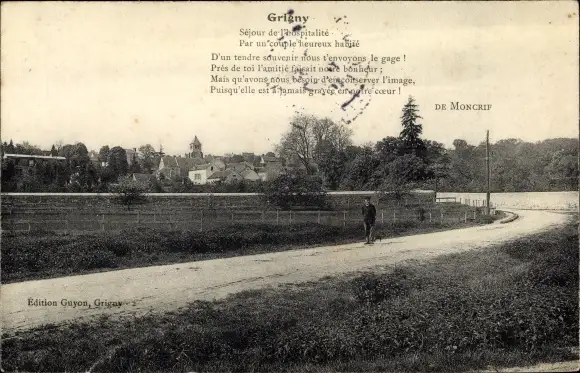 Grigny
Séjour de l'hospitalité
Par un couple heureux habité
D'un tendre souvenir nous t'envoyons le gage !
Près de toi l'amitié faisait notre bonheur ;
Mais qu'avons nous besoin d'en conserver l'image,
Puisqu'elle est à jamais gravée en notre cœur !
DE MONCRIF
Édition Guyon, Grigny - 2